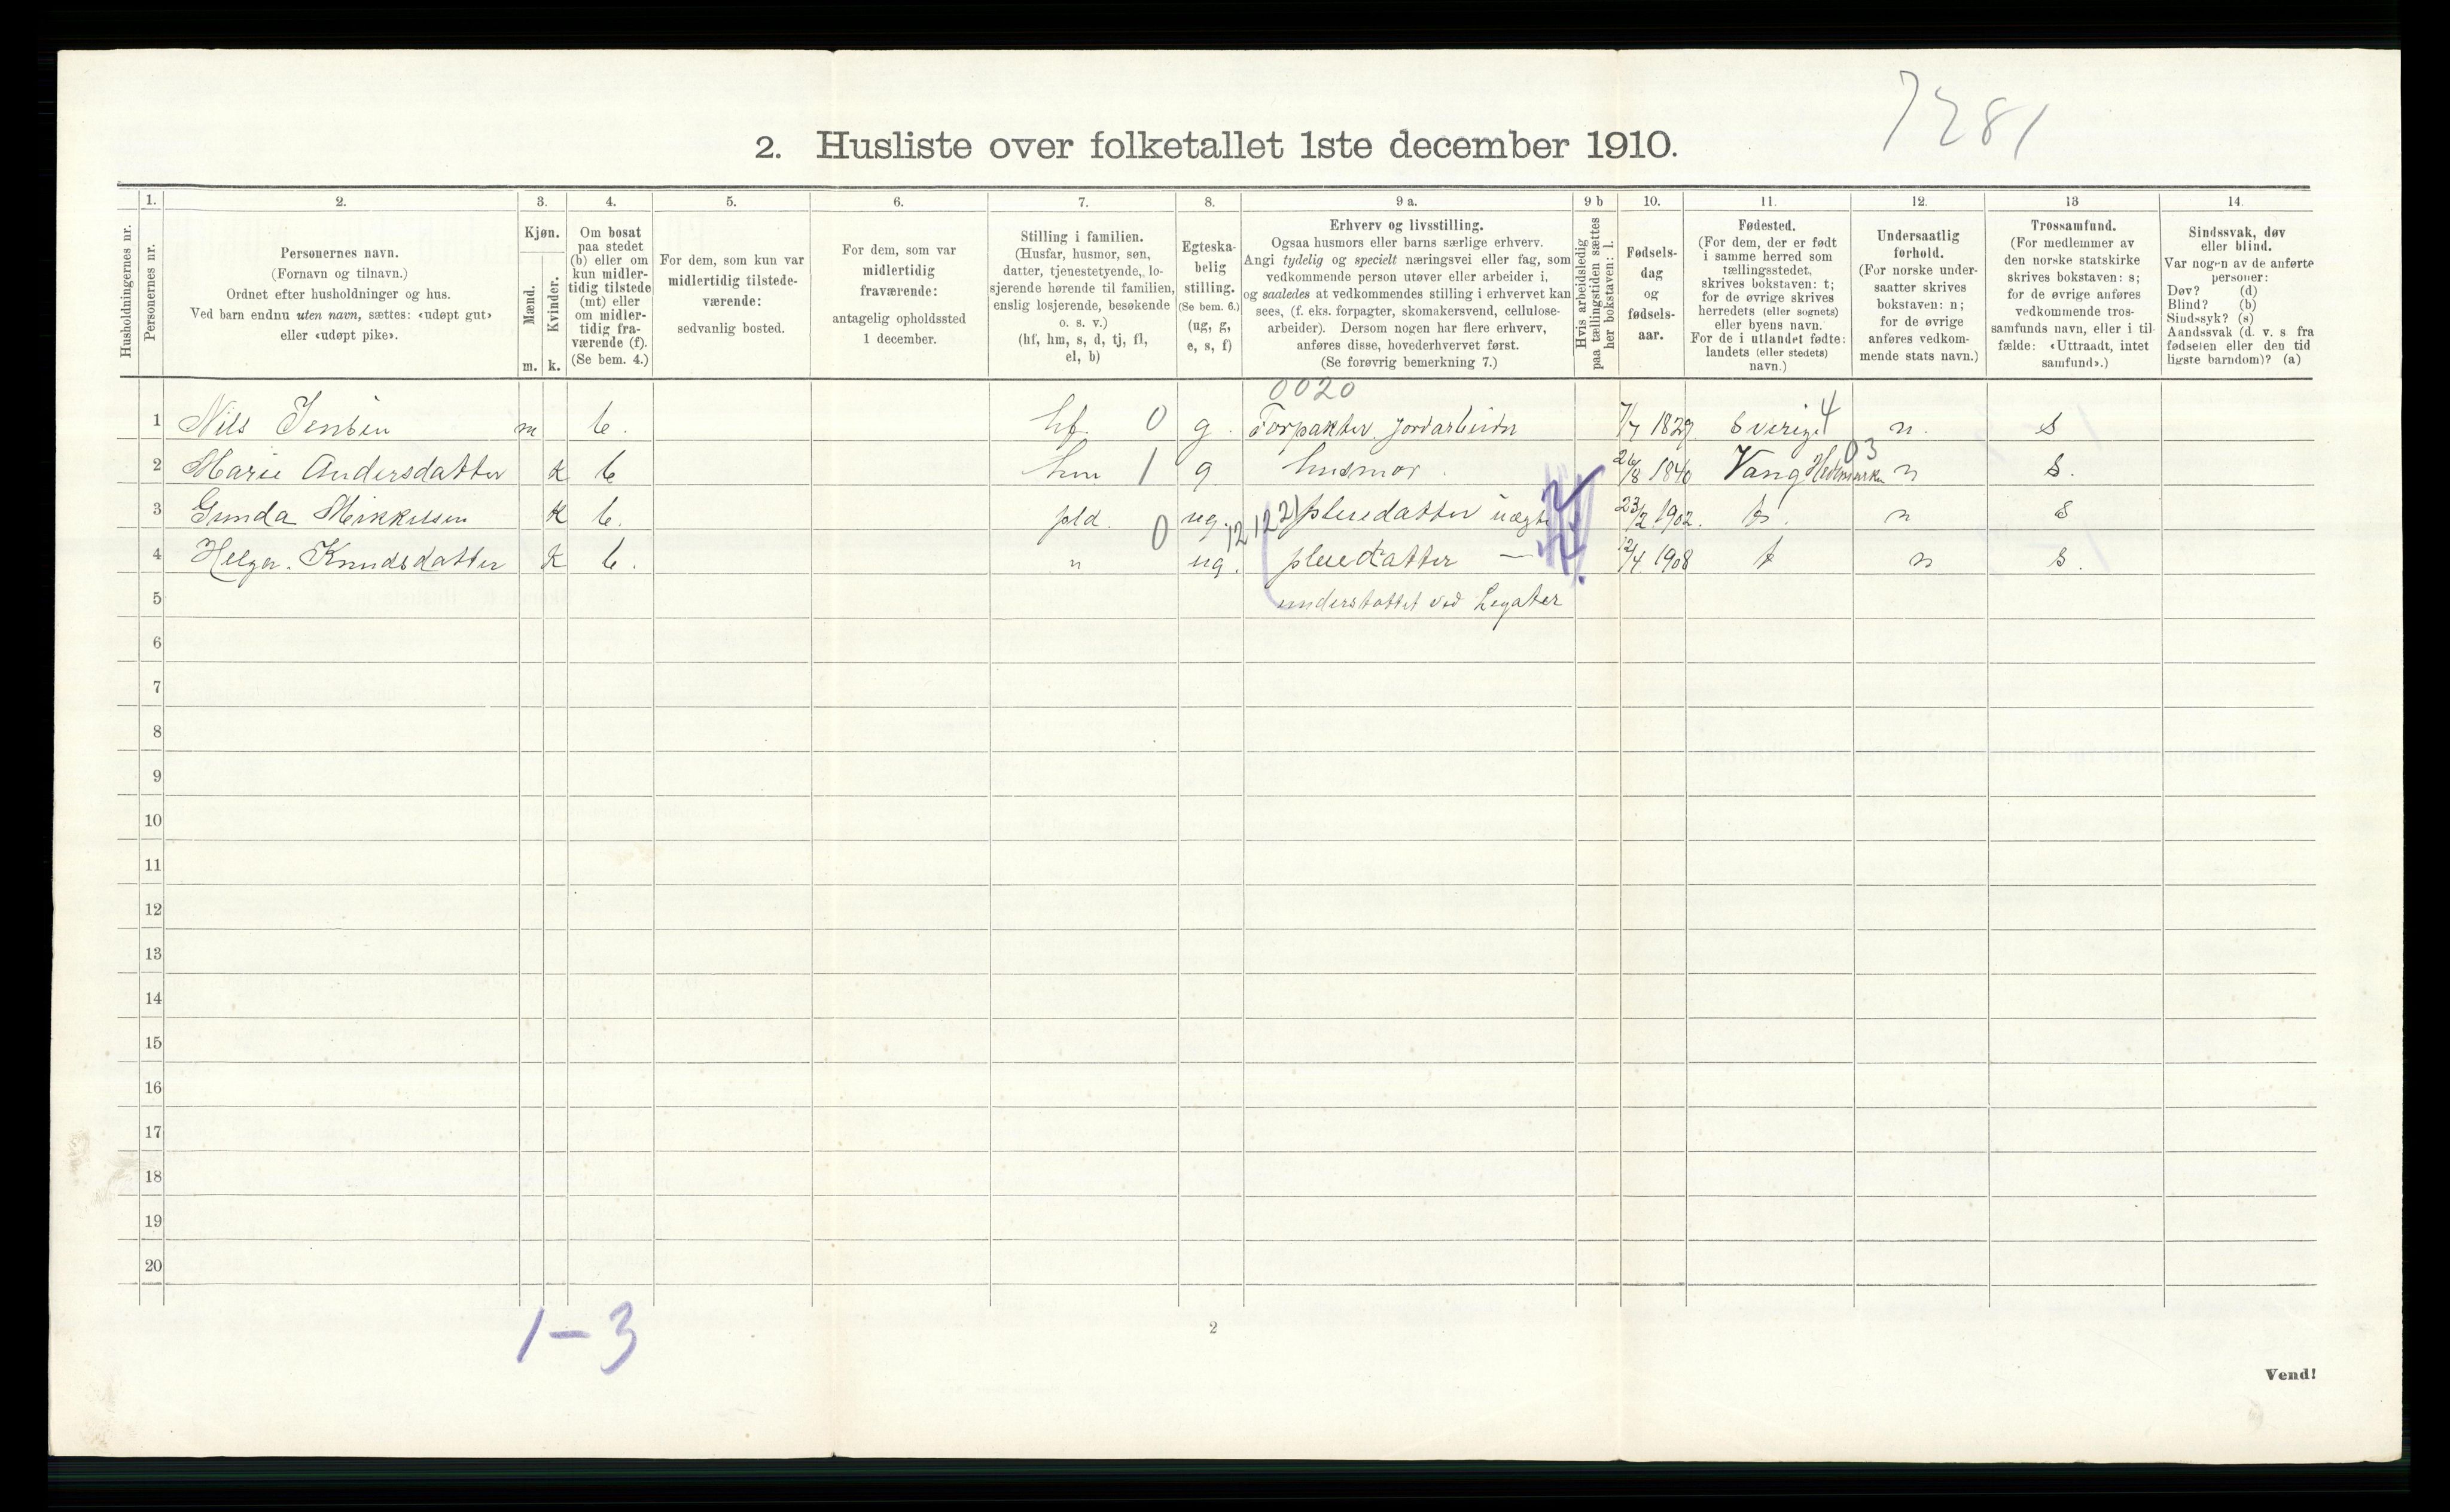 7281
2. Husliste over folketallet 1ste december 1910.
Husholdningernes nr.
1.
Personernes nr.
2.
Personernes navn.
(Fornavn og tilnavn.)
Ordnet efter husholdninger og hus.
Ved barn endnu uten navn, sættes: «udøpt gut»
eller «udøpt pike».
3.
Kjøn.
Mænd.
Kvinder.
m. k.
4.
Om bosat
paa stedet
(b) eller om
kun midler-
tidig tilstede
(mt) eller
om midler-
tidig fra-
værende (f).
(Se bem. 4.)
5.
For dem, som kun var
midlertidig tilstede-
værende:
sedvanlig bosted.
6.
For dem, som var
midlertidig
fraværende:
antagelig opholdssted
1 december.
7.
Stilling i familien.
(Husfar, husmor, søn,
datter, tjenestetyende, lo-
sjerende hørende til familien,
enslig losjerende, besøkende
o. s. v.)
(hf, hm, s, d, tj, fl,
el, b)
8.
Egteska-
belig
stilling.
(Se bem. 6.)
(ug, g,
e, s, f)
9 a.
Erhverv og livsstilling.
Ogsaa husmors eller barns særlige erhverv.
Angi tydelig og specielt næringsvei eller fag, som
vedkommende person utøver eller arbeider i,
og saaledes at vedkommendes stilling i erhvervet kan
sees, (f. eks. forpagter, skomakersvend, cellulose-
arbeider). Dersom nogen har flere erhverv,
anføres disse, hovederhvervet først.
(Se forøvrig bemerkning 7.)
9 b
Hvis arbeidsledig
paa tællingstiden sættes
her bokstaven: l.
10.
Fødsels-
dag
og
fødsels-
aar.
11.
Fødested.
(For dem, der er født
i samme herred som
tællingsstedet,
skrives bokstaven: t;
for de øvrige skrives
herredets (eller sognets)
eller byens navn.
For de i utlandet fødte:
landets (eller stedets)
navn.)
12.
Undersaatlig
forhold.
(For norske under-
saatter skrives
bokstaven: n;
for de øvrige
anføres vedkom-
mende stats navn.)
13
Trossamfund.
(For medlemmer av
den norske statskirke
skrives bokstaven: s;
for de øvrige anføres
vedkommende tros-
samfunds navn, eller i til-
fælde: «Uttraadt, intet
samfund».)
14.
Sindssvak, døv
eller blind.
Var nogen av de anførte
personer:
Døv? (d)
Blind? (b)
Sindssyk? (s)
Aandssvak (d. v. s. fra
fødselen eller den tid
ligste barndom)? (a)
0020
1 Nils Jensen m b. hf. 0 g. Forpakter. jordarbeider 7/7 1829 Sverige 4 n. s
2 Marie Andersdatter k b hm 1 g husmor. 26/8 1840 Vang Hedemarken 03 n s.
3 Gunda Mikkelsen k b. pld. 0 ug. 12 12 2) pleiedatter uægte 23/2 1902. t. n s
4 Helga. Knudsdatter k b. " ug. pleiedatter — 12/4 1908 t n s.
5 understøttet ved Legater
6
7
8
9
10
11
12
13
14
15
16
17
18
19
20
1-3
2
Vend!